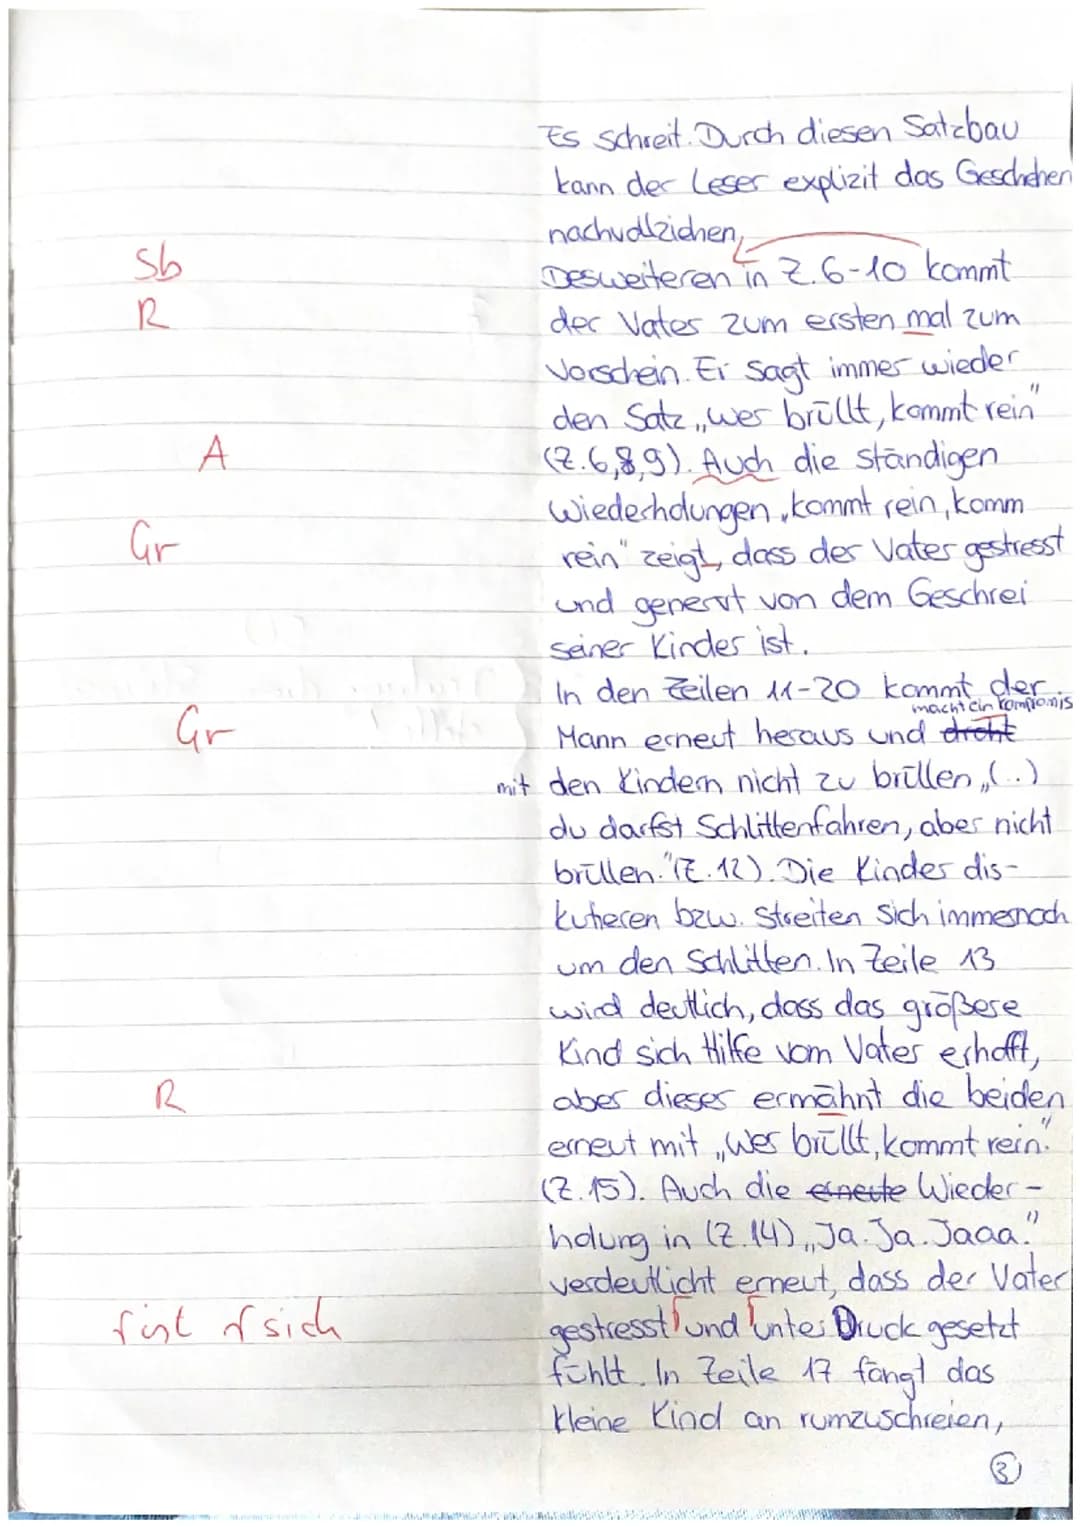 Es schreit. Durch diesen Satzbau
kann der Leser explizit das Geschehen
nachvollziehen,
Sb Desweiteren in Z. 6-10 kommt
R der Vater zum ersten mal zum
Vorschein. Er sagt immer wieder
den Satz „wer brüllt, kommt rein"
A (Z. 6,8,9). Auch die ständigen
Wiederholungen „kommt rein, komm
Gr rein" zeigt, dass der Vater gestresst
und genervt von dem Geschrei
seiner Kinder ist.
In den Zeilen 11-20 kommt der
macht ein Kompromis
Gr Mann erneut heraus und droht
mit den Kindern nicht zu brüllen „(..)
du darfst Schlittenfahren, aber nicht
brüllen." (Z. 12). Die Kinder dis-
kutieren bzw. streiten sich immernoch
um den Schlitten. In Zeile 13
wird deutlich, dass das größere
Kind sich Hilfe vom Vater erhofft,
R aber dieser ermähnt die beiden
erneut mit „Wer brüllt, kommt rein."
(Z. 15). Auch die erneute Wieder-
holung in (Z. 14) „Ja. Ja. Jaaa."
verdeutlicht erneut, dass der Vater
ſ ist ſ sich gestresst und unter Druck gesetzt
fühlt. In Zeile 17 fängt das
kleine Kind an rumzuschreien,
3